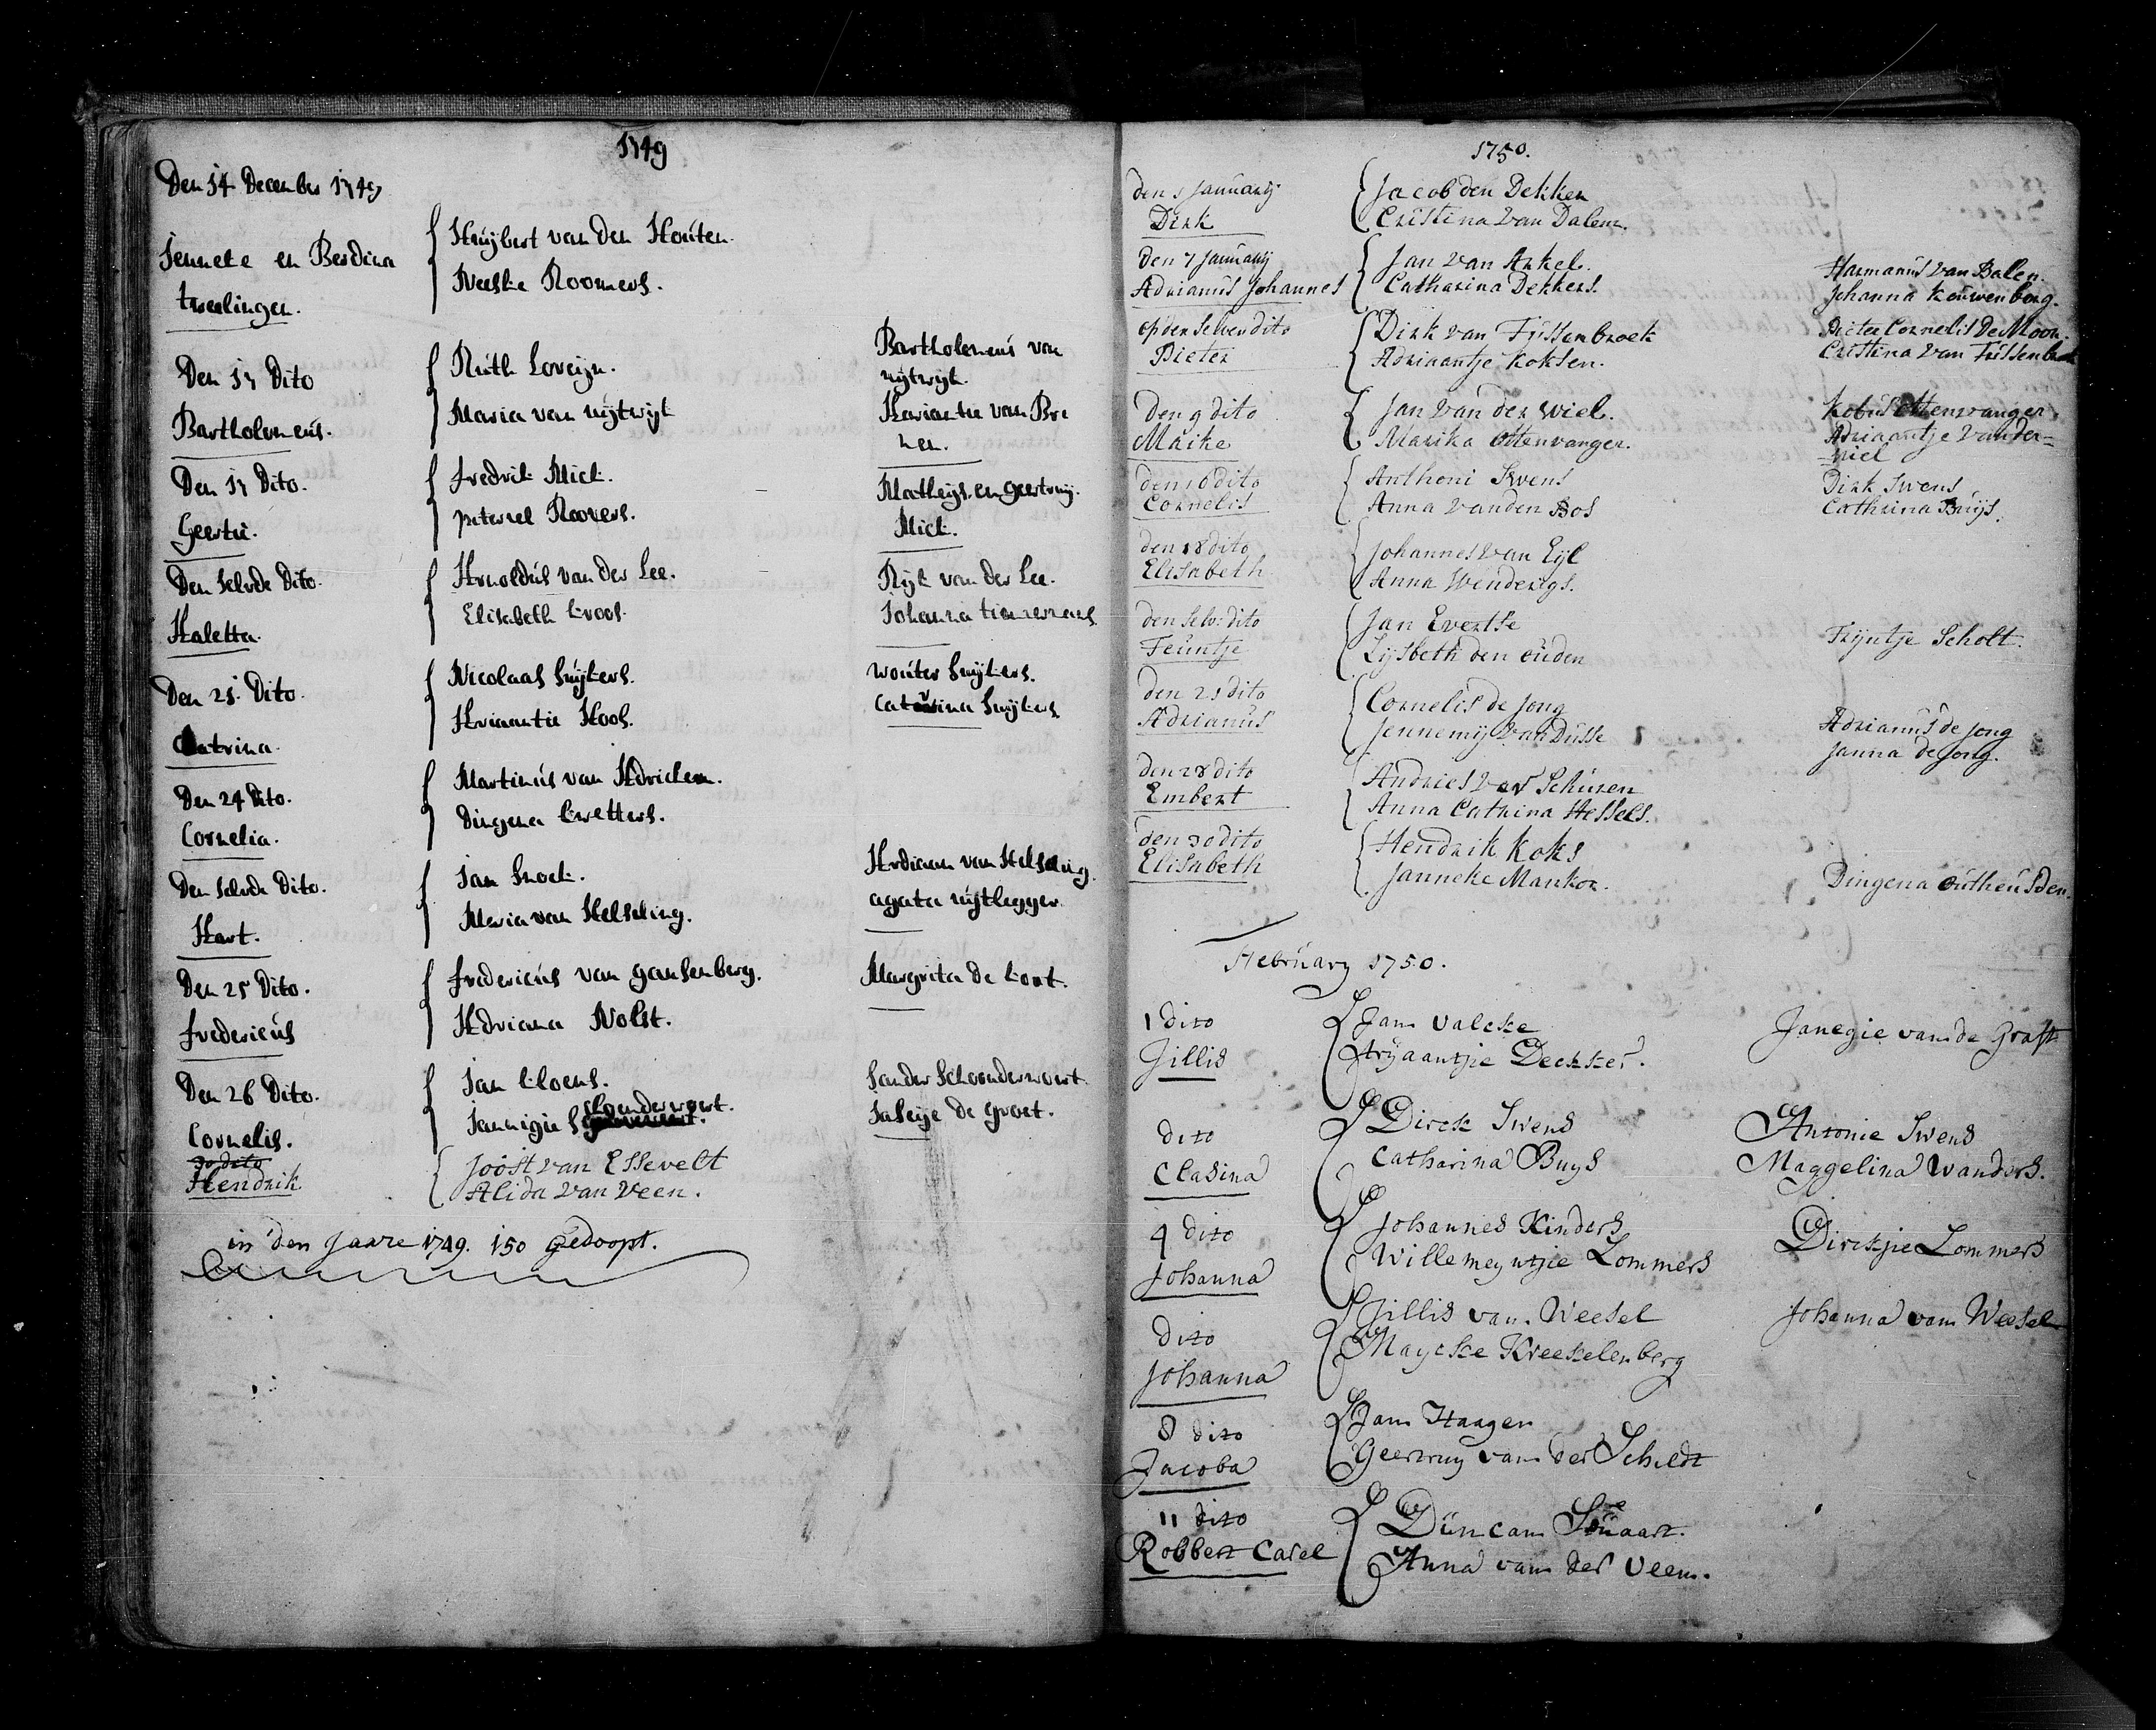 1749
Den 14 December 1749
Jenneke en Berdina
tweelingen.
Huijbert van den Houten.
Neeske Roomers.
Den 17 Dito
Bartholomeus.
Ruth Loveijn.
Maria van uijtwijk
Bartholomeus van
uijtwijk.
Hariantie van Bre
nen.
Den 17 Dito.
Geertie.
fredrik Mick.
peternel Roovers.
Mathijs en geertruij.
Mick.
Den selvde Dito.
Haletta.
Arnoldus van der Lee.
Elisabeth kroos.
Rijk van der Lee.
Johanna timermans
Den 21 Dito.
Catrina.
Nicolaas Snijkers.
Ariaantie Hool.
wouter Snijkers.
Catarina Snijkers
Den 24 Dito.
Cornelia.
Martinus van Adrichem.
Dingena Cretters.
Den selvde Dito.
Aart.
Jan Snoek.
Maria van Helseling.
Ardiaan van Helseling.
agata uijtlegger.
Den 25 Dito.
fredericus
fredericus van gansenberg.
Adriana Nolst.
Margrita de kort.
Den 26 Dito.
Cornelis.
Jan Cloens.
Jannigie Schoonderwoert.
Sander Schoonderwoert.
Saleije de groot.
30 dito
Hendrik
Joost van Essevelt
Alida van Veen.
in den Jaare 1749. 150 gedoopt.
1750.
den 1 Januarij
Dirk
Jacob den Dekker
Cristina van Dalem.
den 7 Januarij
Adrianus Johannes
Jan van Arkel.
Catharina Dekkers.
Harmanus van Balen.
Johanna kouwenberg.
op den selven dito
Pieter
Dirk van Fussenbroek
Adriaantje Koksen.
Pieter Cornelis De Moor.
Cristina van Fussenbroek
Den 9 dito
Maike
Jan van der Wiel.
Marika Ottenvanger.
Kobus Ottenvanger,
Adriaantje vander=
wiel
den 16 dito
Cornelis
Anthoni Swens
Anna vanden Bos
Dirk Swens
Cathrina Buijs.
den 18 dito
Elisabeth
Johannes van Eijl
Anna Wenderigs.
den selv: dito
Teuntje
Jan Evertse
Lijsbeth den ouden
Trijntje Scholt.
den 21 dito
Adrianus
Cornelis de Jong
Jennemij van Dusse
Adrianus de Jong
Janna de Jong.
den 28 dito
Embert
Andries ver Schuren
Anna Cathrina Hessels.
den 30 dito
Elisabeth
Hendrik Koks
Janneke Mankor.
Dingena outheusden.
February 1750.
1 dito
Jillis
Jan valcke
Aryaantjie Deckker.
Janegie van de Graft
dito
Clasina
Dirck Swens
Catharina Buys
Antonie Swens
Maggelina Wanders.
4 dito
Johanna
Johannes Kinders
Willemeyntjie Lommers
Dirckjie Lommers
Dito
Johanna
Jillis van Weesel
Maycke Kreekelenberg
Johanna van Weesel
8 dito
Jacoba
Jan Haagen
Geertruy van der Schildt
11 dito
Robbert Carel
Duncan Stuaart.
Anna van der Veen.